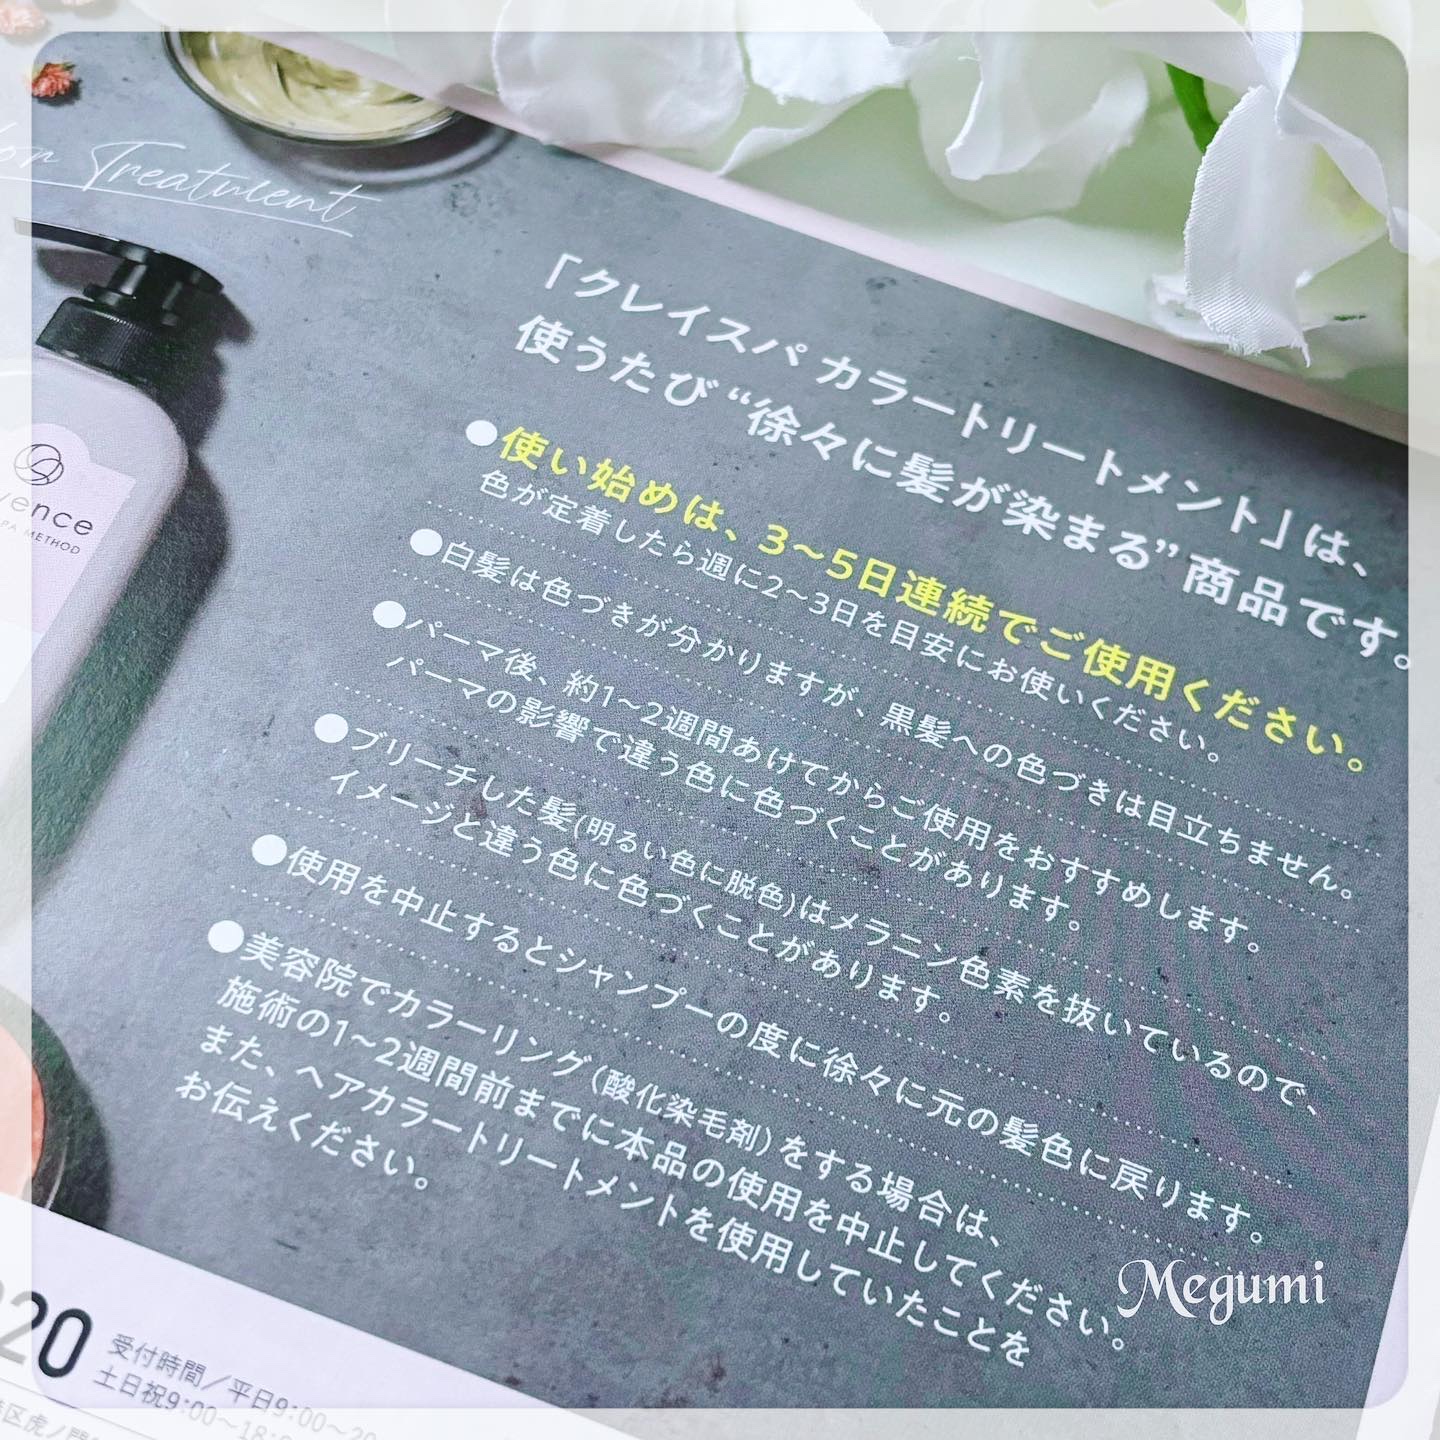 Treatment
「クレイスパ カラートリートメント」は、
使うたび“徐々に髪が染まる”商品です。
●使い始めは、3〜5日連続でご使用ください。
色が定着したら週に2〜3日を目安にお使いください。
●白髪は色づきが分かりますが、黒髪への色づきは目立ちません。
●パーマ後、約1〜2週間あけてからご使用をおすすめします。
パーマの影響で違う色に色づくことがあります。
●ブリーチした髪(明るい色に脱色)はメラニン色素を抜いているので、
イメージと違う色に色づくことがあります。
●使用を中止するとシャンプーの度に徐々に元の髪色に戻ります。
●美容院でカラーリング(酸化染毛剤)をする場合は、
施術の1〜2週間前までに本品の使用を中止してください。
また、ヘアカラートリートメントを使用していたことを
お伝えください。
vence
PA METHOD
20
受付時間／平日9:00〜20
土日祝9:00〜18:0
区虎ノ門
Megumi